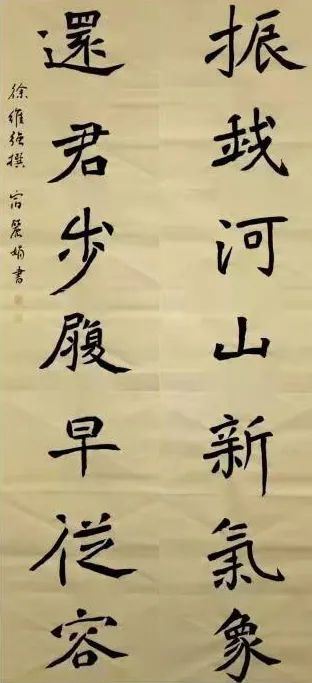 振我河山新氣象
還君步履早從容
徐維強撰 麗娟書